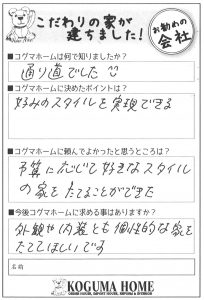 こだわりの家が
建ちました!
お勧めの
会社
■コグマホームは何で知りましたか?
通り道でした
■コグマホームに決めたポイントは?
好みのスタイルを実現できる
■コグマホームに頼んでよかったと思うところは?
予算に応じて好きなスタイル
の家をたてることができた
■今後コグマホームに求める事はありますか?
外観や内装とも個性的な家を
たててほしいです
名前
KOGUMA HOME